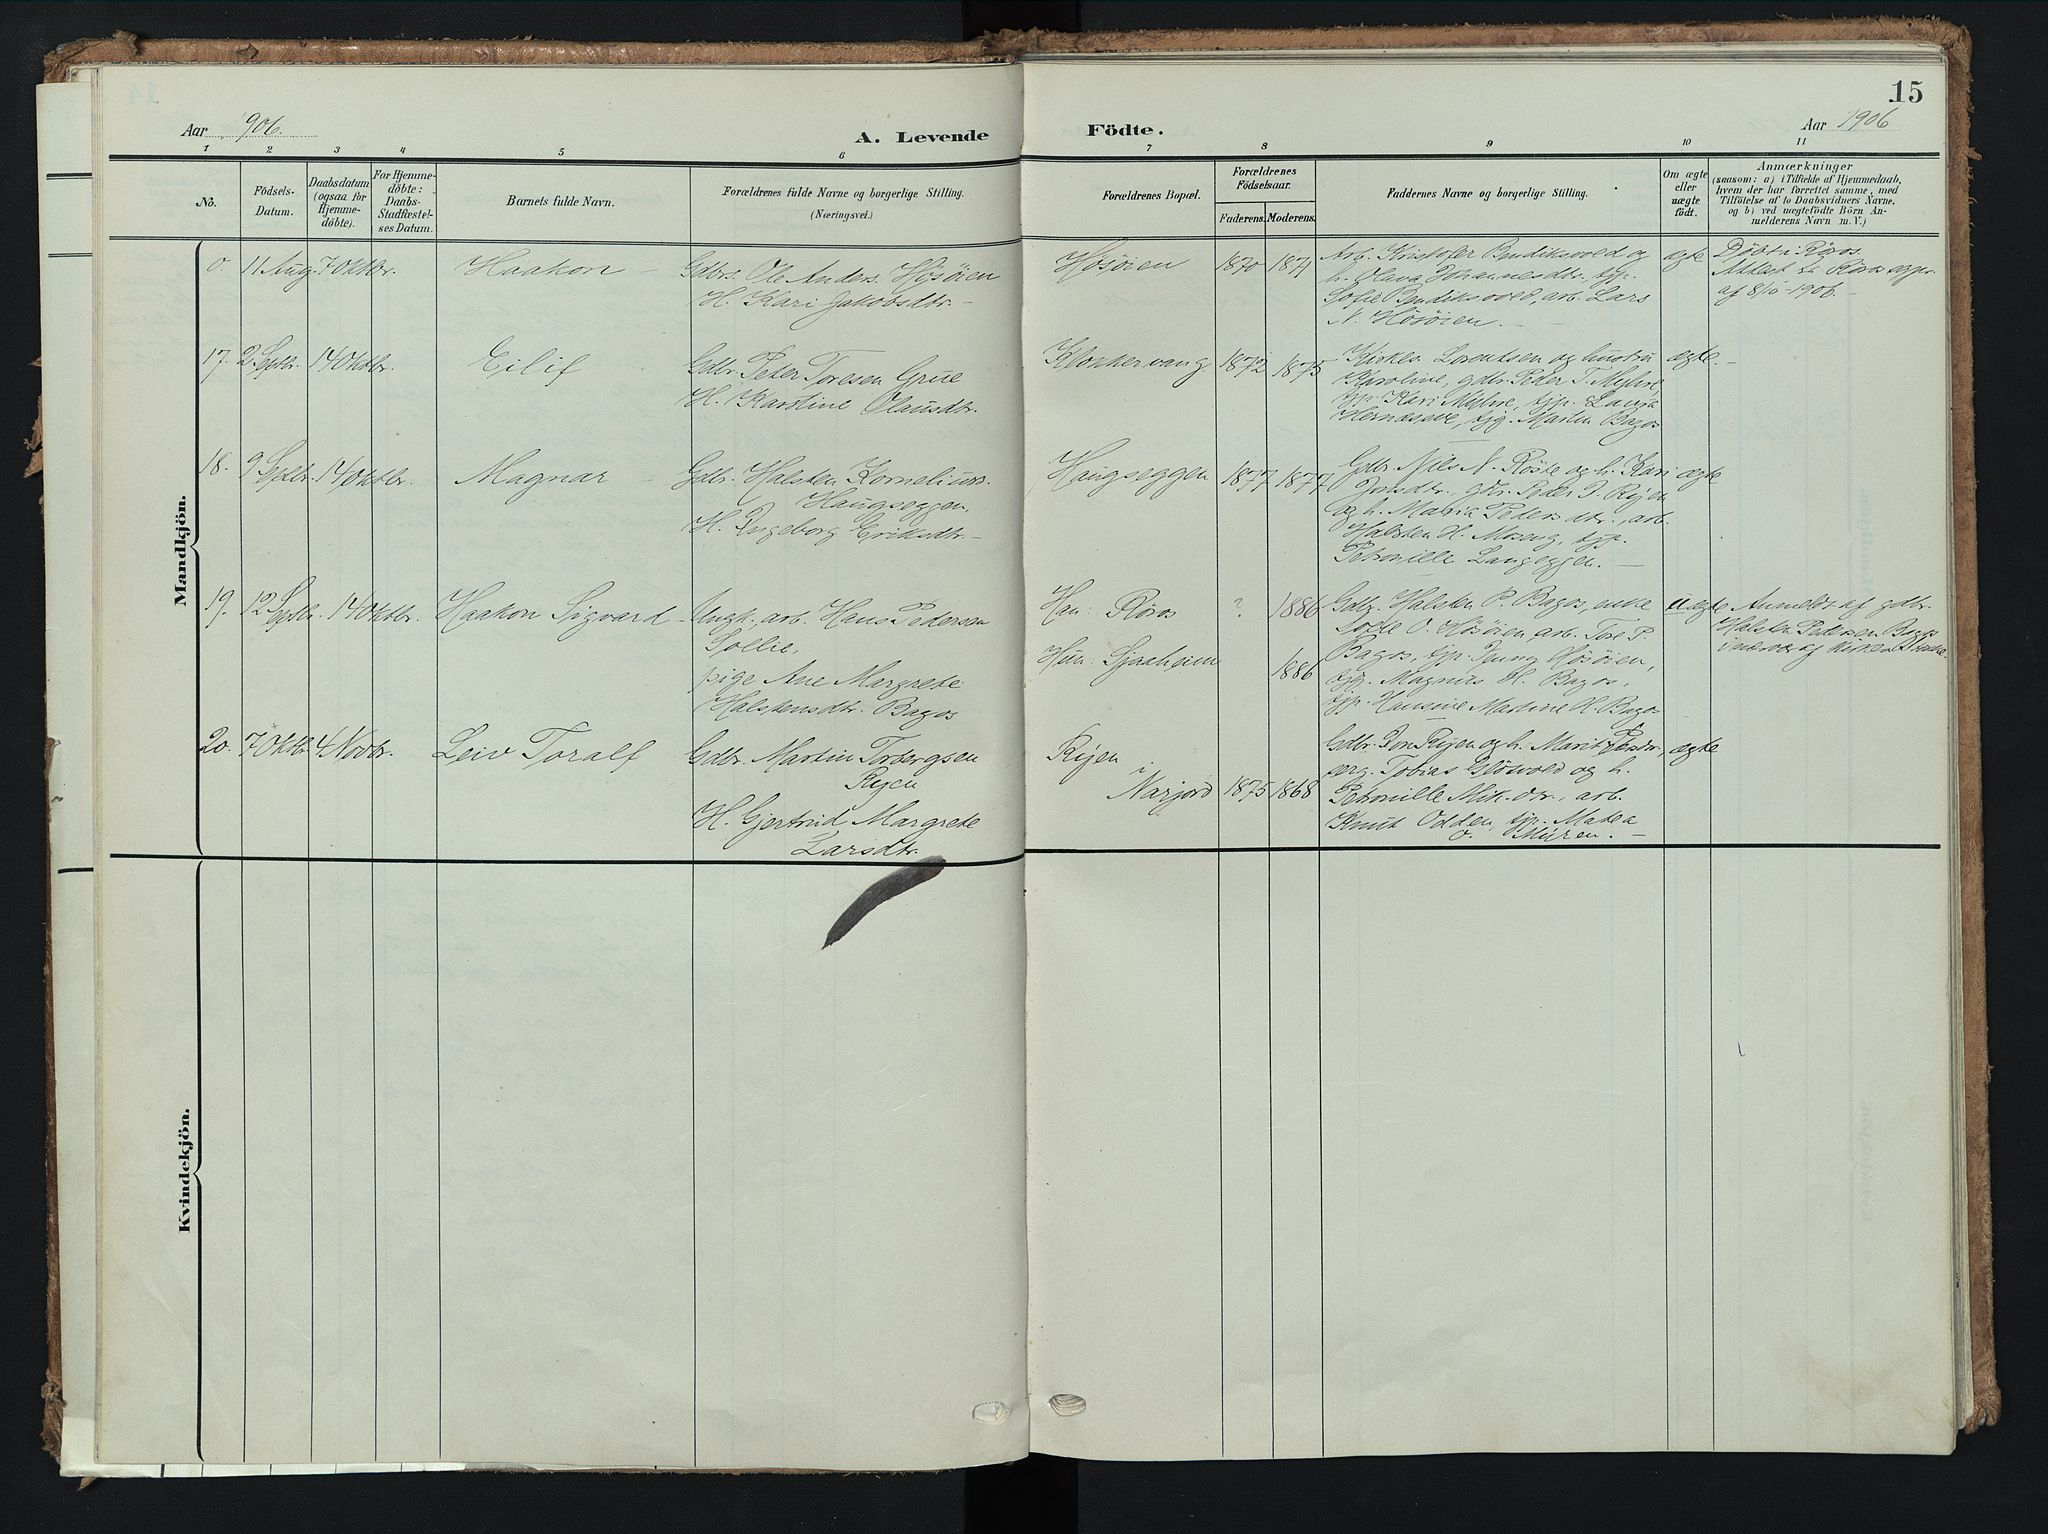 15
Aar 906.
A. Levende
Födte.
Aar 1906
1 2 3 4 5 6 7 8 9 10 11
No.
Födsels-
Datum.
Daabsdatum
(ogsaa for
Hjemme-
döbte).
For Hjemme-
döbte:
Daabs-
Stadfæstel-
ses Datum.
Barnets fulde Navn.
Forældrenes fulde Navne og borgerlige Stilling.
(Næringsvei.)
Forældrenes Bopæl.
Forældrenes
Födselsaar.
Faderens. Moderens.
Faddernes Navne og borgerlige Stilling.
Om ægte
eller
uægte
födt.
Anmærkninger
(saasom: a) i Tilfælde af Hjemmedaab,
hvem der har forrettet samme, med
Tilföielse af to Daabsvidners Navne,
og b) ved uægtefödte Börn An-
melderens Navn m. V.)
Mandkjön.
0. 11 Aug. 7 Oktbr. Haakon –
Gdbr. Ole Anders. Hösöien
H. Kari Jakobsdtr. –
Hösöien 1870 1871
Arb. Kristofer Bendiksvold og
h. Olava Johannesdtr. tjp.
Sofie Bendiksvold, arb. Lars
N. Hösöien. –
ægte
Döbt i Röros.
Attest fra Röros sgpr.
af 8/10-1906. –
17. 2 Septbr. 14 Oktbr. Eilif
Gdbr. Peter Toresen Grue
H. Karoline Olausdtr.
Klokkervang 1872 1875
Kirkes. Lorentsen og hustru
Karoline, gdbr. Peder T. Myhre,
tjp. Kari Myhre, tjp. Laura
tjg. Martin Bagos
ægte. –
18. 9 Septbr. 14 Oktbr. Magnar –
Gdbr. Halsten Kornelius.
Haugseggen
H. Ingeborg Eriksdtr. –
Haugseggen 1877 1877
Gdbr. Nils N. Röste og h. Kari
Jonsdtr., gdbr. Peder J. Rijen
og h. Maria Pedersdtr., arb.
Halsten H. Moseng, tjp.
Petronille Langeggen. –
ægte
19. 12 Septbr. 14 Oktbr. Haakon Sigvard –
Ungk. arb. Hans Pedersen
Sollie,
pige Ane Margrete
Halstensdtr. Bagos
Han: Röros ? 1886
Hun: Sjaaheim 1886
Gdbr. Halsten P. Bagos, enke
O. Hösöien, arb. Tore P.
Bagos, tjp. Jenny Hösöien,
tjg. Magnus H. Bagos,
tjp. Hansine Martine H. Bagos
uægte
Anmeldt af gdbr.
Halsten Pedersen Bagos
20. 7 Oktbr. 4 Novbr. Leiv Toralf
Gdbr. Martin Torbergsen
Rijen
H. Gjertrud Margrete
Larsdtr.
Rijen
i
Narjord 1875 1868
Gdbr. Jon Rijen og h. Marit Persdr.,
Tobias Glösvold og h.
Petronille Mik.dtr., arb.
Knut Odden, tjp. Matea
O. Myren. –
ægte
Kvindekjön.